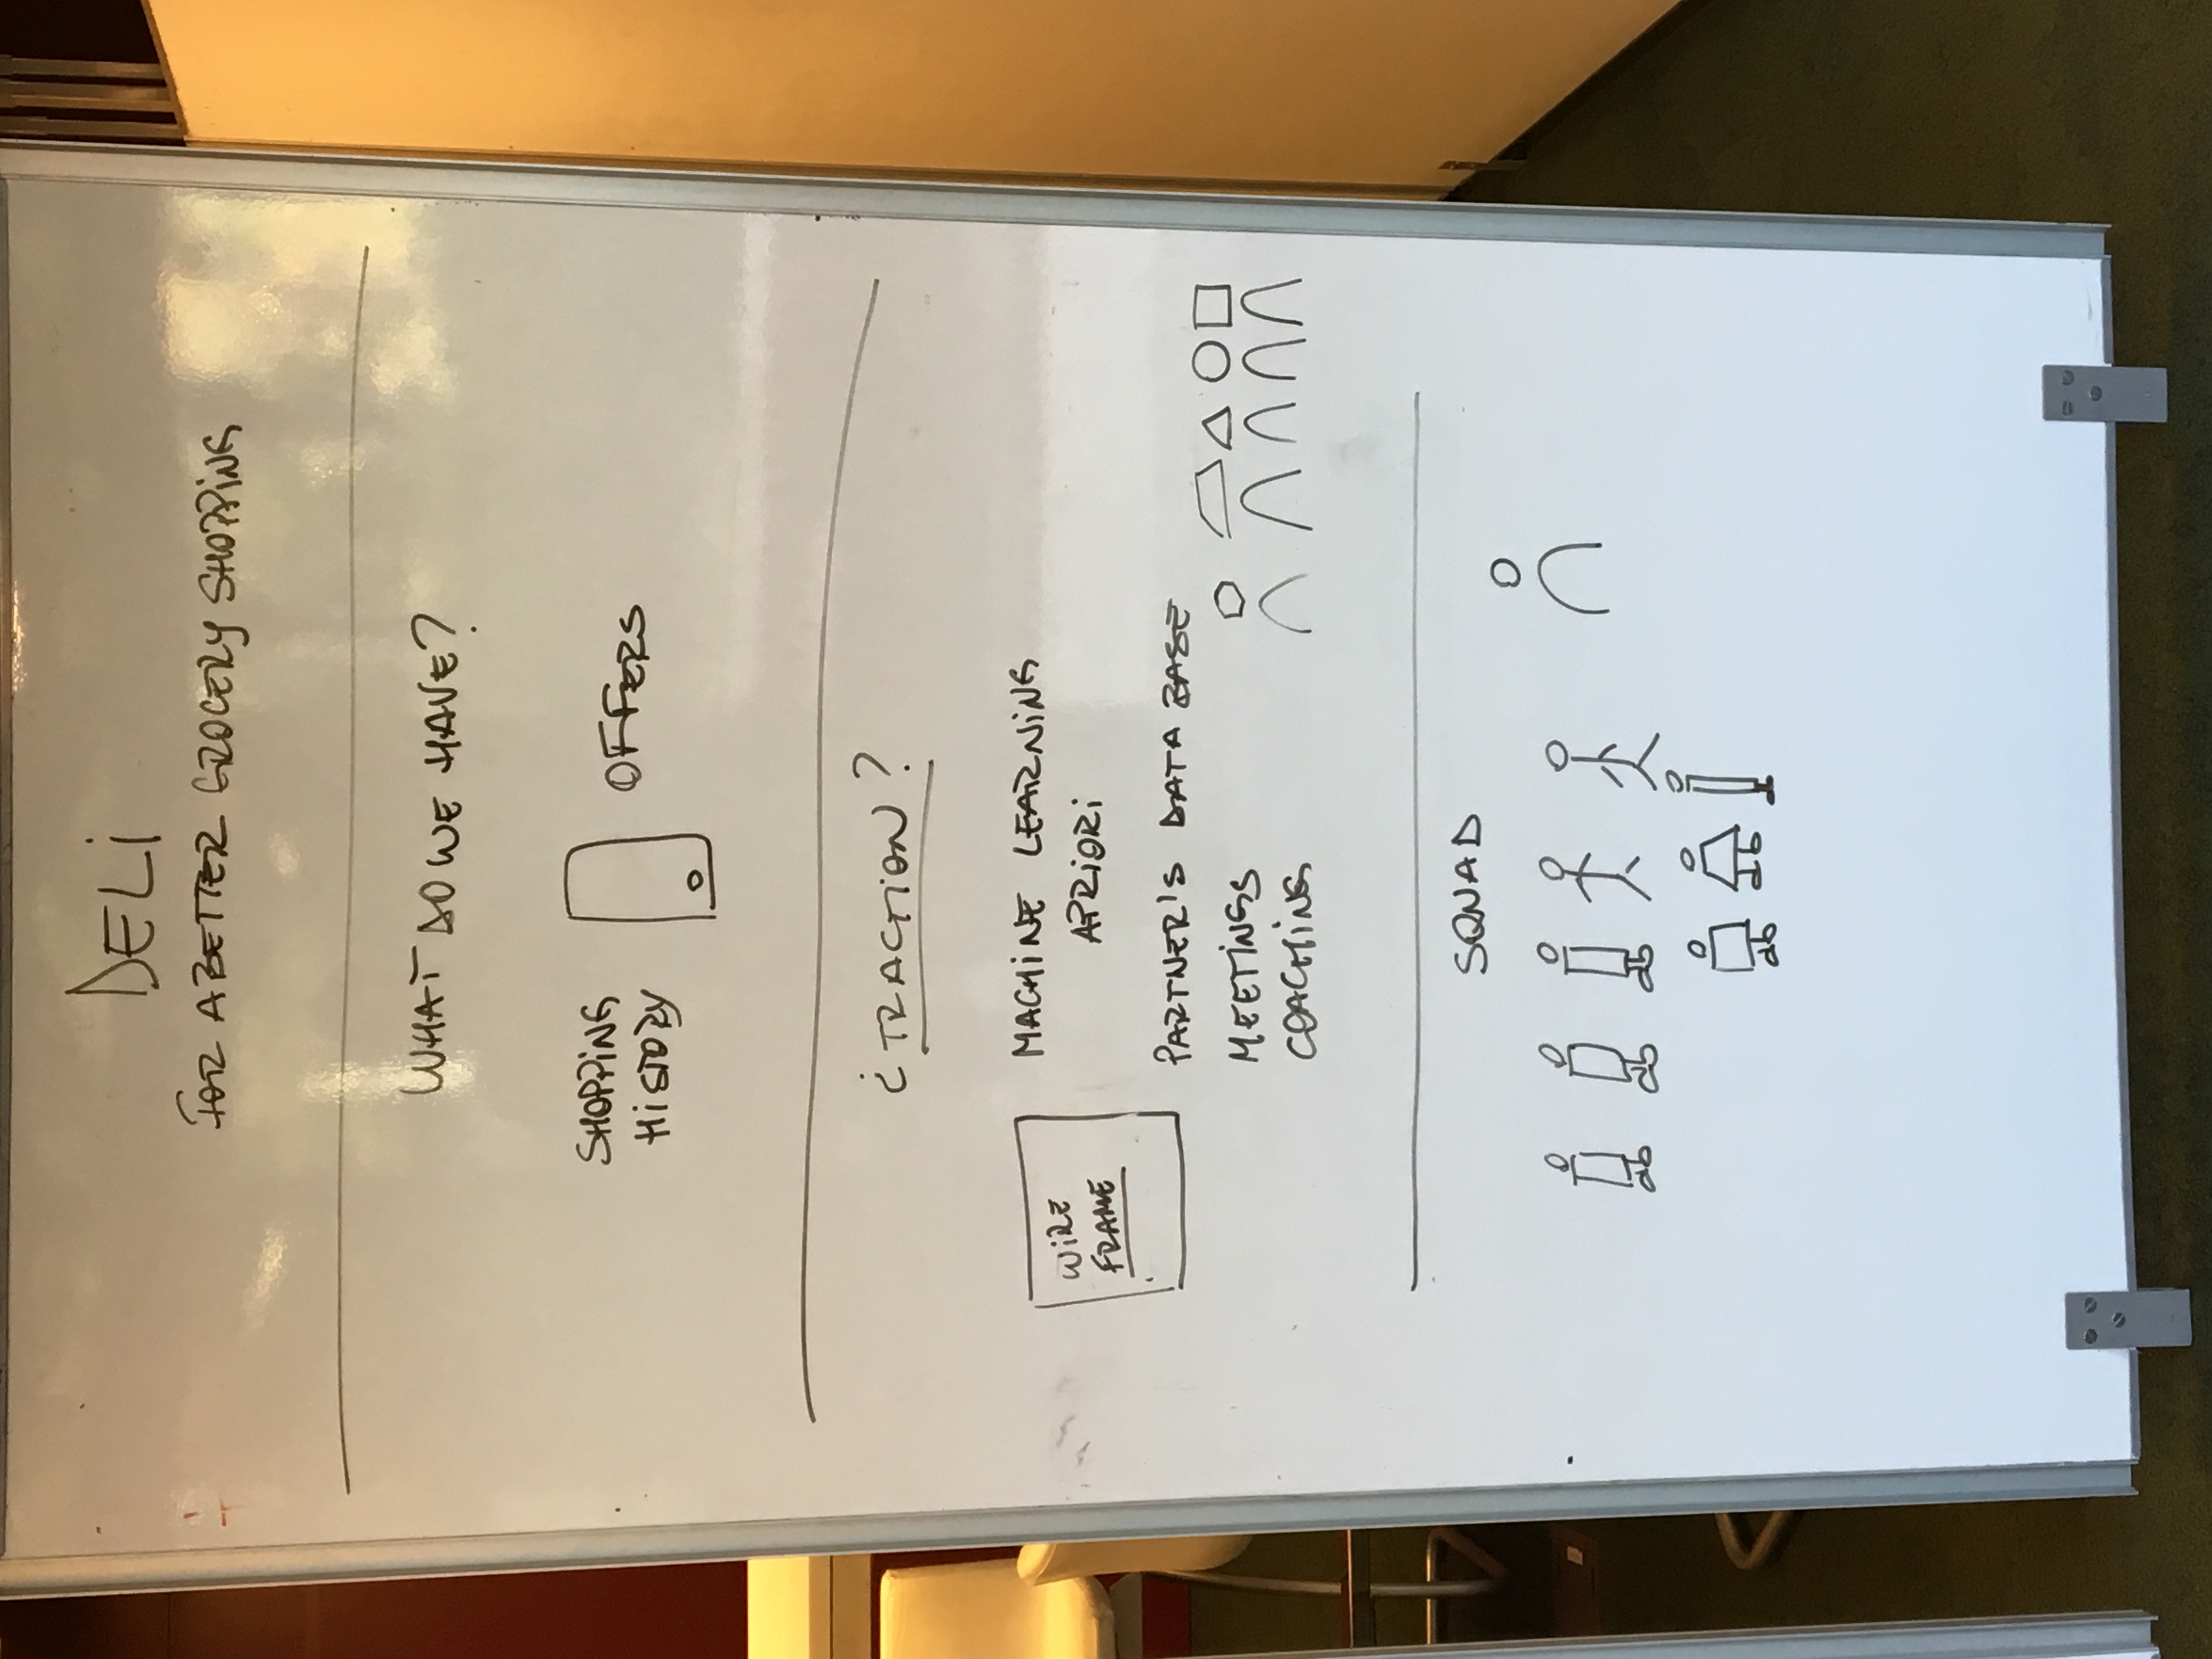 DELi
FOR A BETTER GROCERY SHOPPiNG
WHAT DO WE HAVE?
SHOPPiNG
HiSTORY
OFFERS
¿TRACTiON?
WiRE
FRAME
MACHiNE LEARNiNG
APRiORi
PARTNER'S DATA BASE
MEETiNGS
COACHiNG
SQUAD